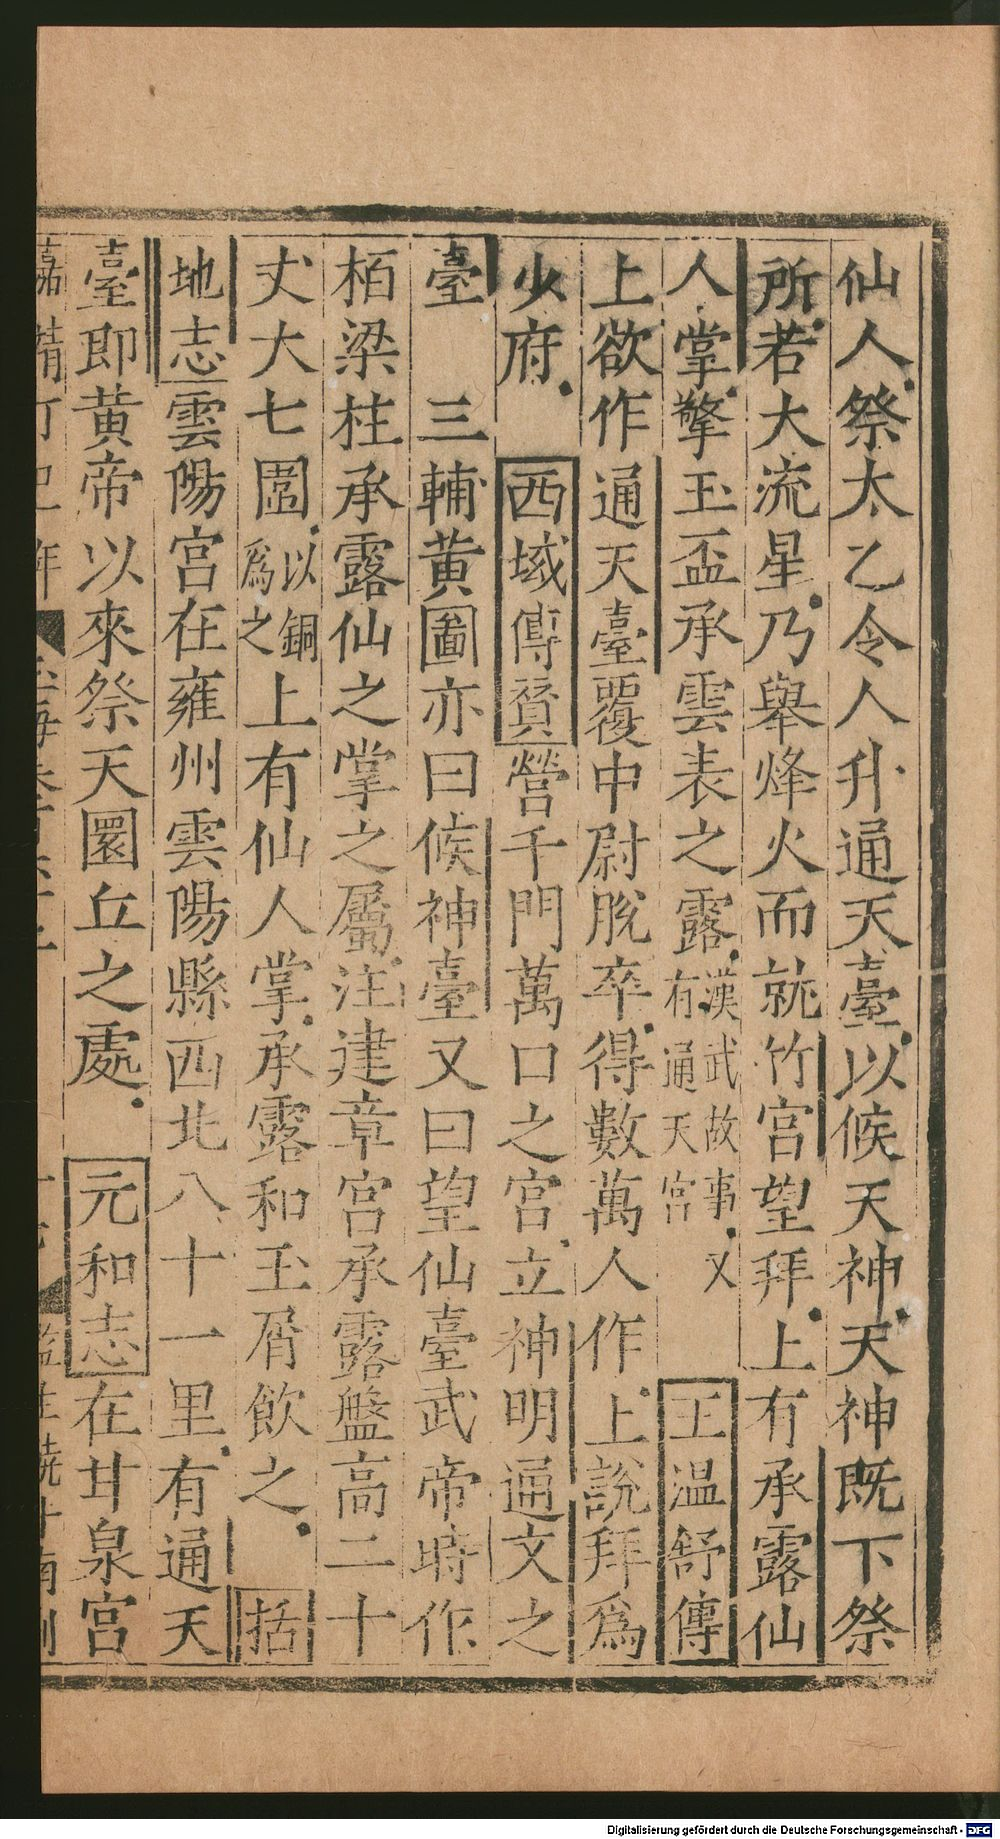 仙人祭太乙令人升通天臺以候天神天神既下祭
所若大流星乃舉烽火而就竹宫望拜上有承露仙
人掌擎玉盃承雲表之露漢武故事又有通天宫王温舒傳
上欲作通天臺覆中尉脫卒得數萬人作上說拜爲
少府 西域傳贊營千門萬口之宫立神明通文之
臺 三輔黄圖亦曰候神臺又曰望仙臺武帝時作
栢梁柱承露仙之掌之屬注建章宫承露盤高二十
丈大七圍以銅爲之上有仙人掌承露和玉屑飲之 括
地志雲陽宫在雍州雲陽縣西北八十一里有通天
臺即黄帝以來祭天圜丘之處 元和志在甘泉宫
嘉靖丁巳年
Digitalisierung gefördert durch die Deutsche Forschungsgemeinschaft - DFG